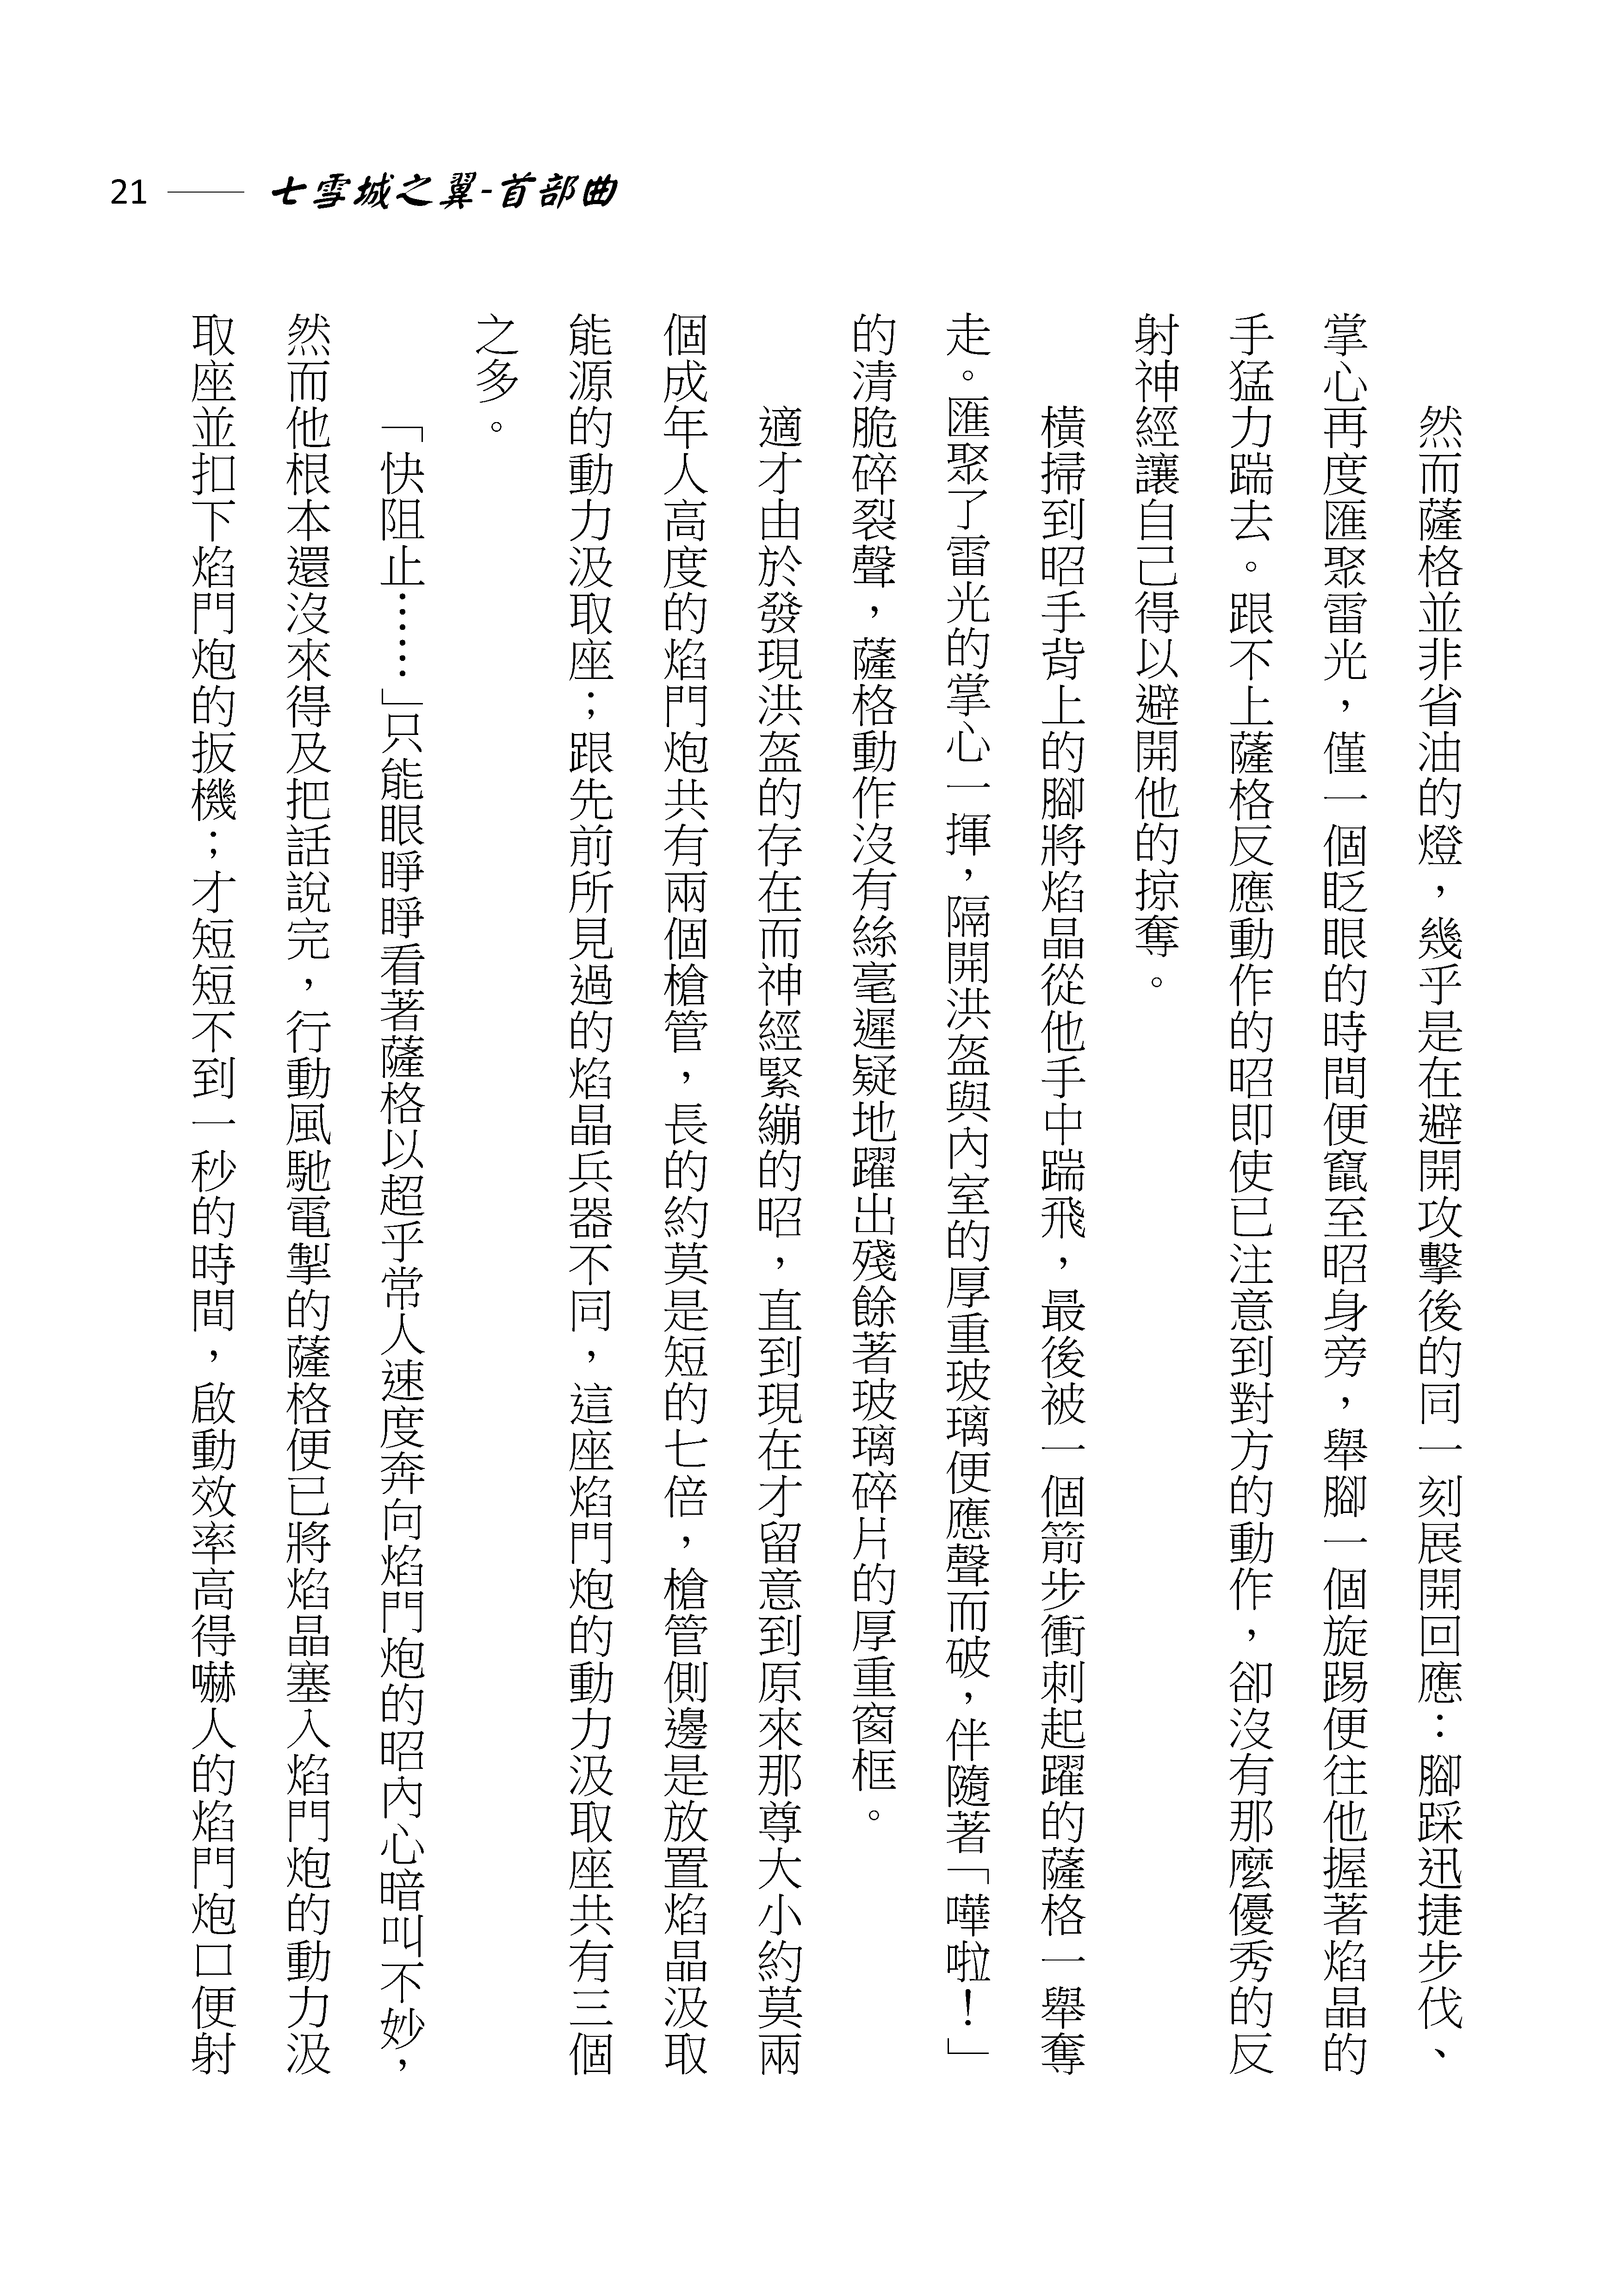 21 七雪城之翼-首部曲
然而薩格並非省油的燈，幾乎是在避開攻擊後的同一刻展開回應：腳踩迅捷步伐、
掌心再度匯聚雷光，僅一個眨眼的時間便竄至昭身旁，舉腳一個旋踢便往他握著焰晶的
手猛力踹去。跟不上薩格反應動作的昭即使已注意到對方的動作，卻沒有那麼優秀的反
射神經讓自己得以避開他的掠奪。
橫掃到昭手背上的腳將焰晶從他手中踹飛，最後被一個箭步衝刺起躍的薩格一舉奪
走。匯聚了雷光的掌心一揮，隔開洪盔與內室的厚重玻璃便應聲而破，伴隨著「嘩啦！」
的清脆碎裂聲，薩格動作沒有絲毫遲疑地躍出殘餘著玻璃碎片的厚重窗框。
適才由於發現洪盔的存在而神經緊繃的昭，直到現在才留意到原來那尊大小約莫兩
個成年人高度的焰門炮共有兩個槍管，長的約莫是短的七倍，槍管側邊是放置焰晶汲取
能源的動力汲取座；跟先前所見過的焰晶兵器不同，這座焰門炮的動力汲取座共有三個
之多。
「快阻止……」只能眼睜睜看著薩格以超乎常人速度奔向焰門炮的昭內心暗叫不妙，
然而他根本還沒來得及把話說完，行動風馳電掣的薩格便已將焰晶塞入焰門炮的動力汲
取座並扣下焰門炮的扳機；才短短不到一秒的時間，啟動效率高得嚇人的焰門炮口便射